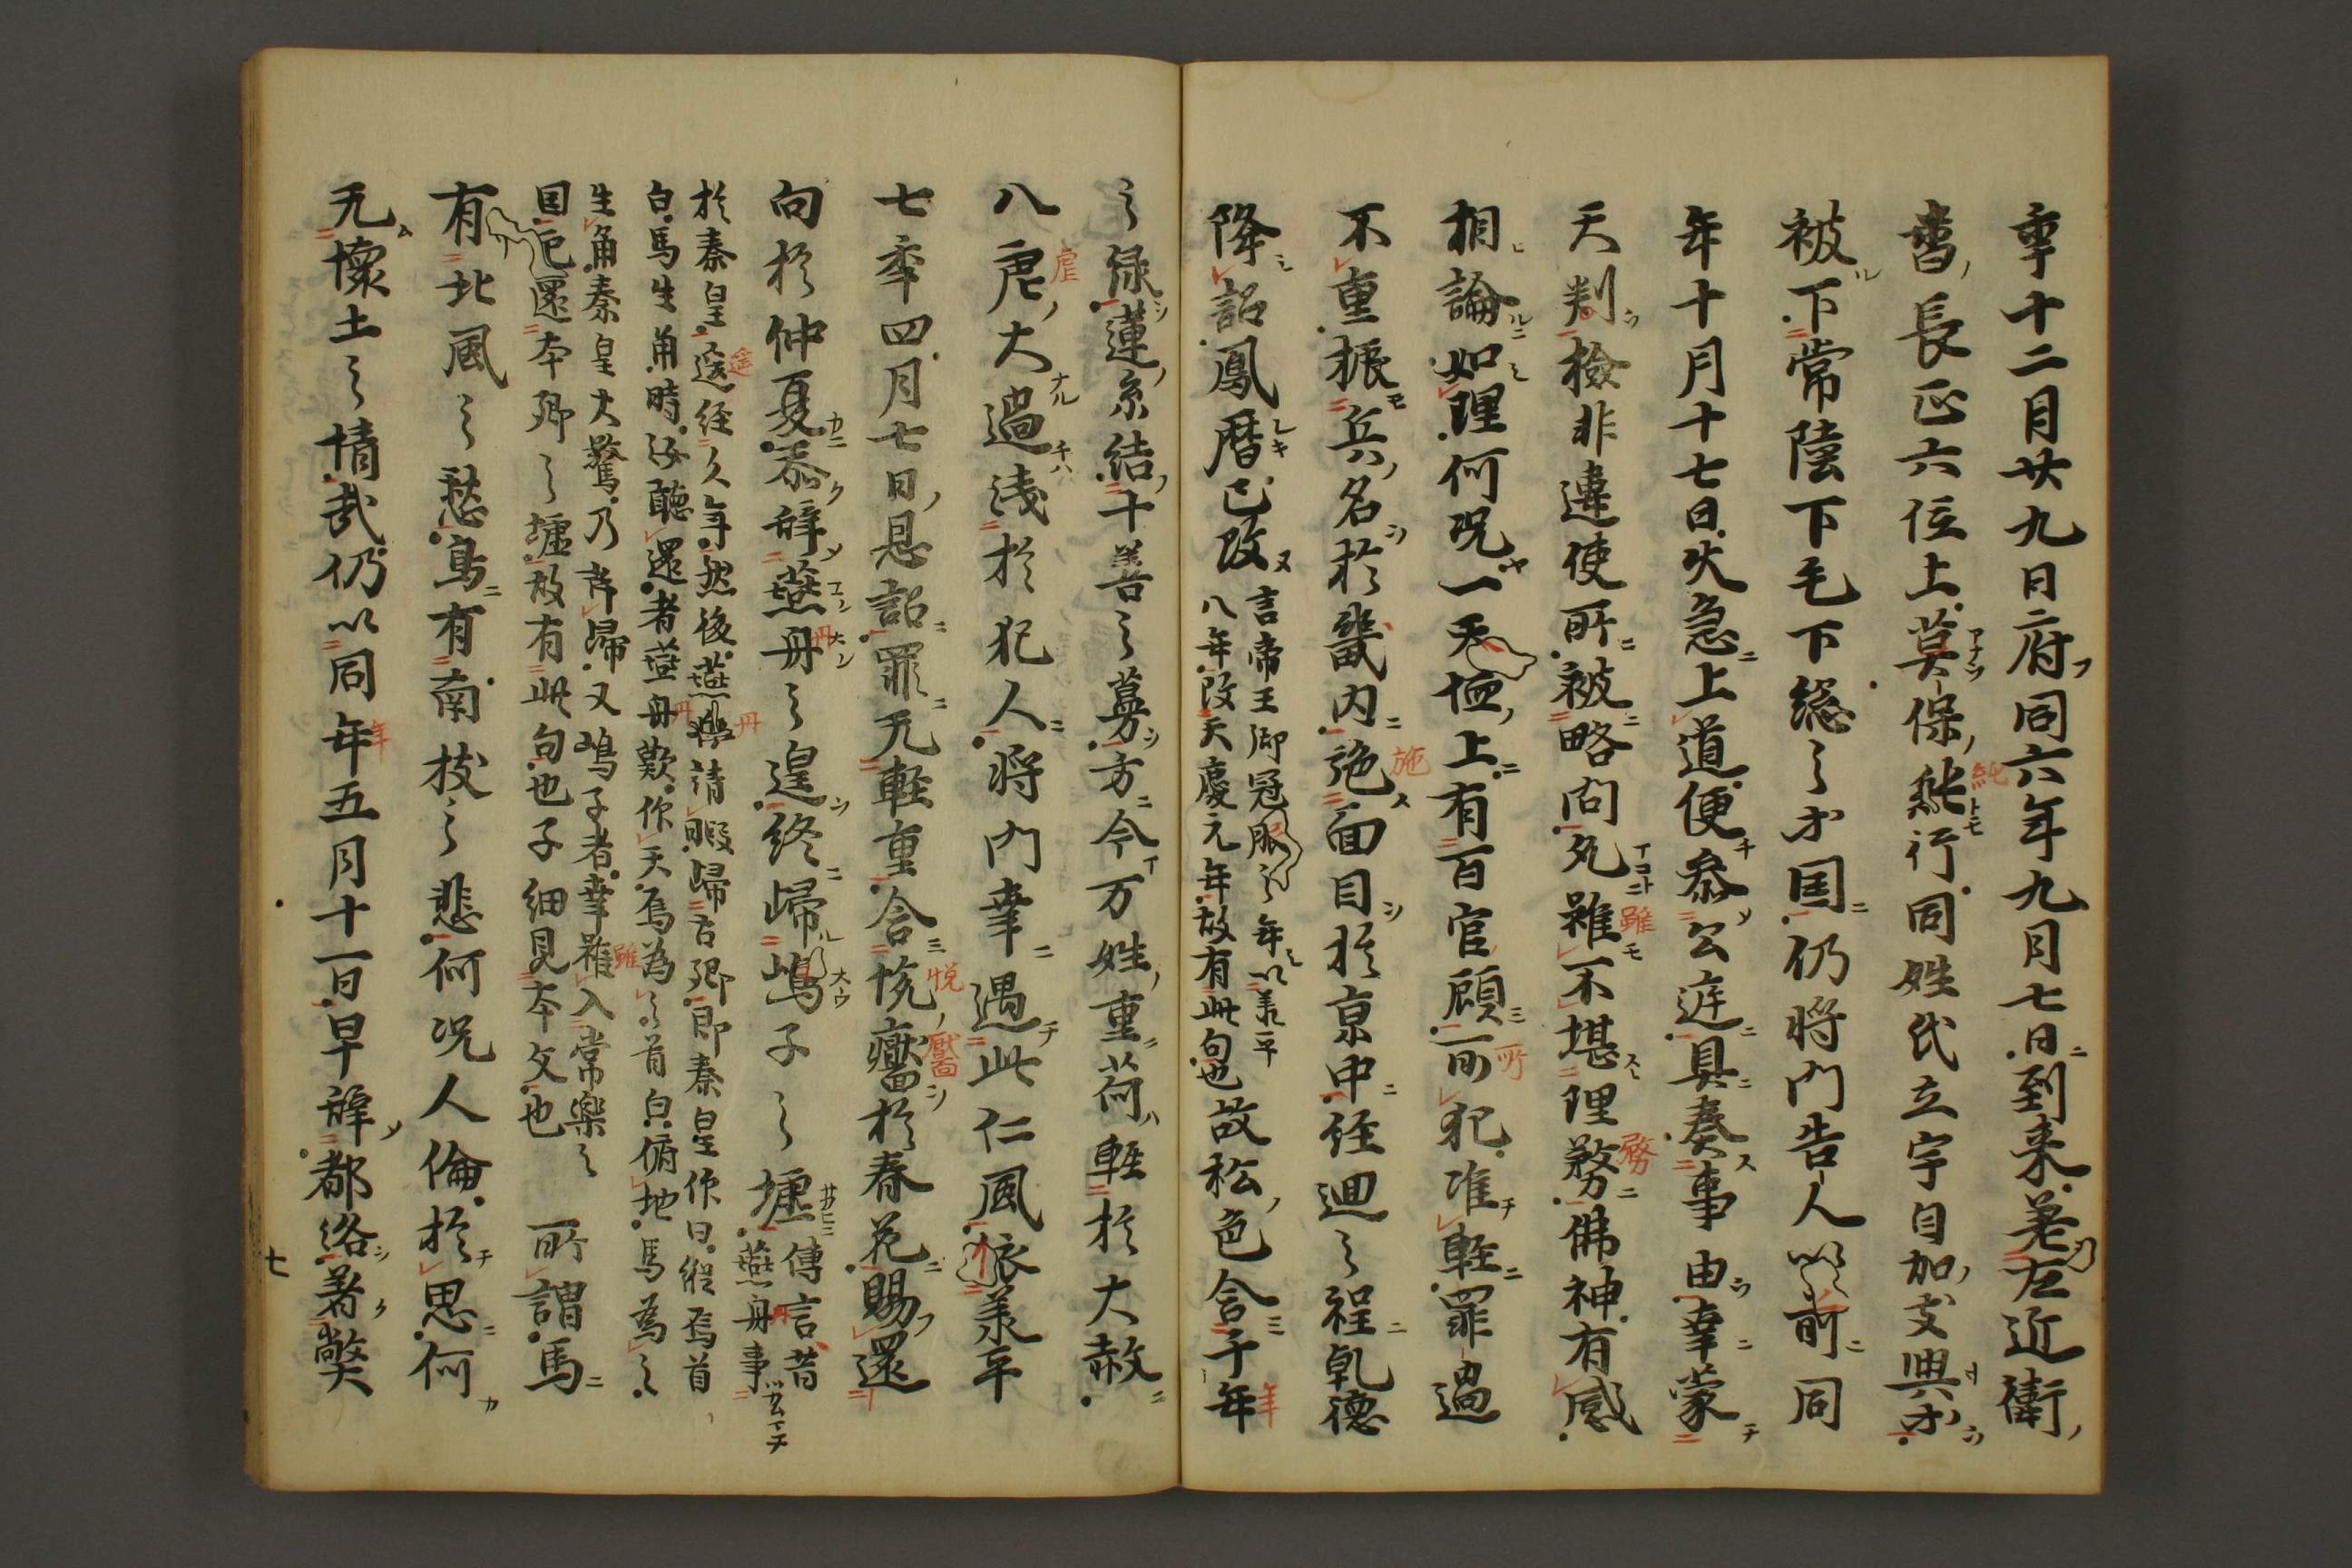 年十二月廿九日府同六年九月七日到来差左近衛
番長正六位上英保純行同姓氏立宇自加支興等
被下常陸下毛下総之等国仍将門告人以前同
年十月十七日火急上道便参公庭具奏事由幸蒙
天判検非違使所被略問允雖不堪理務佛神有感
相論如理何況一天恤上有百官顧所犯准軽罪過
不重振兵名於畿内施面目於京中経廻之程乾徳
降詔鳳暦已改
言帝王御冠服之年以承平
八年改天慶元年故有此句也
故松色含千年
之緑蓮糸結十善之蔓方今万姓重荷軽於大赦
八虐大過浅於犯人将門幸遇此仁風依承平
七年四月七日恩詔罪无軽重含悦靨於春花賜還
向於仲夏忝辞燕丹之遑終帰嶋子之墟
傳言昔
燕丹事
於秦皇遥経久年然後燕丹請暇帰古郷即秦皇仰曰縦烏首
白馬生角時汝聴還者燕丹歎仰天烏為之首白俯地馬為之
生角秦皇大驚乃許帰又嶋子者幸雖入常楽之
国已還本郷之墟故有此句也子細見本文也
所謂馬
有北風之愁鳥有南枝之悲何況人倫於思何
无懐土之情哉仍以同年五月十一日早辞都洛着弊
七